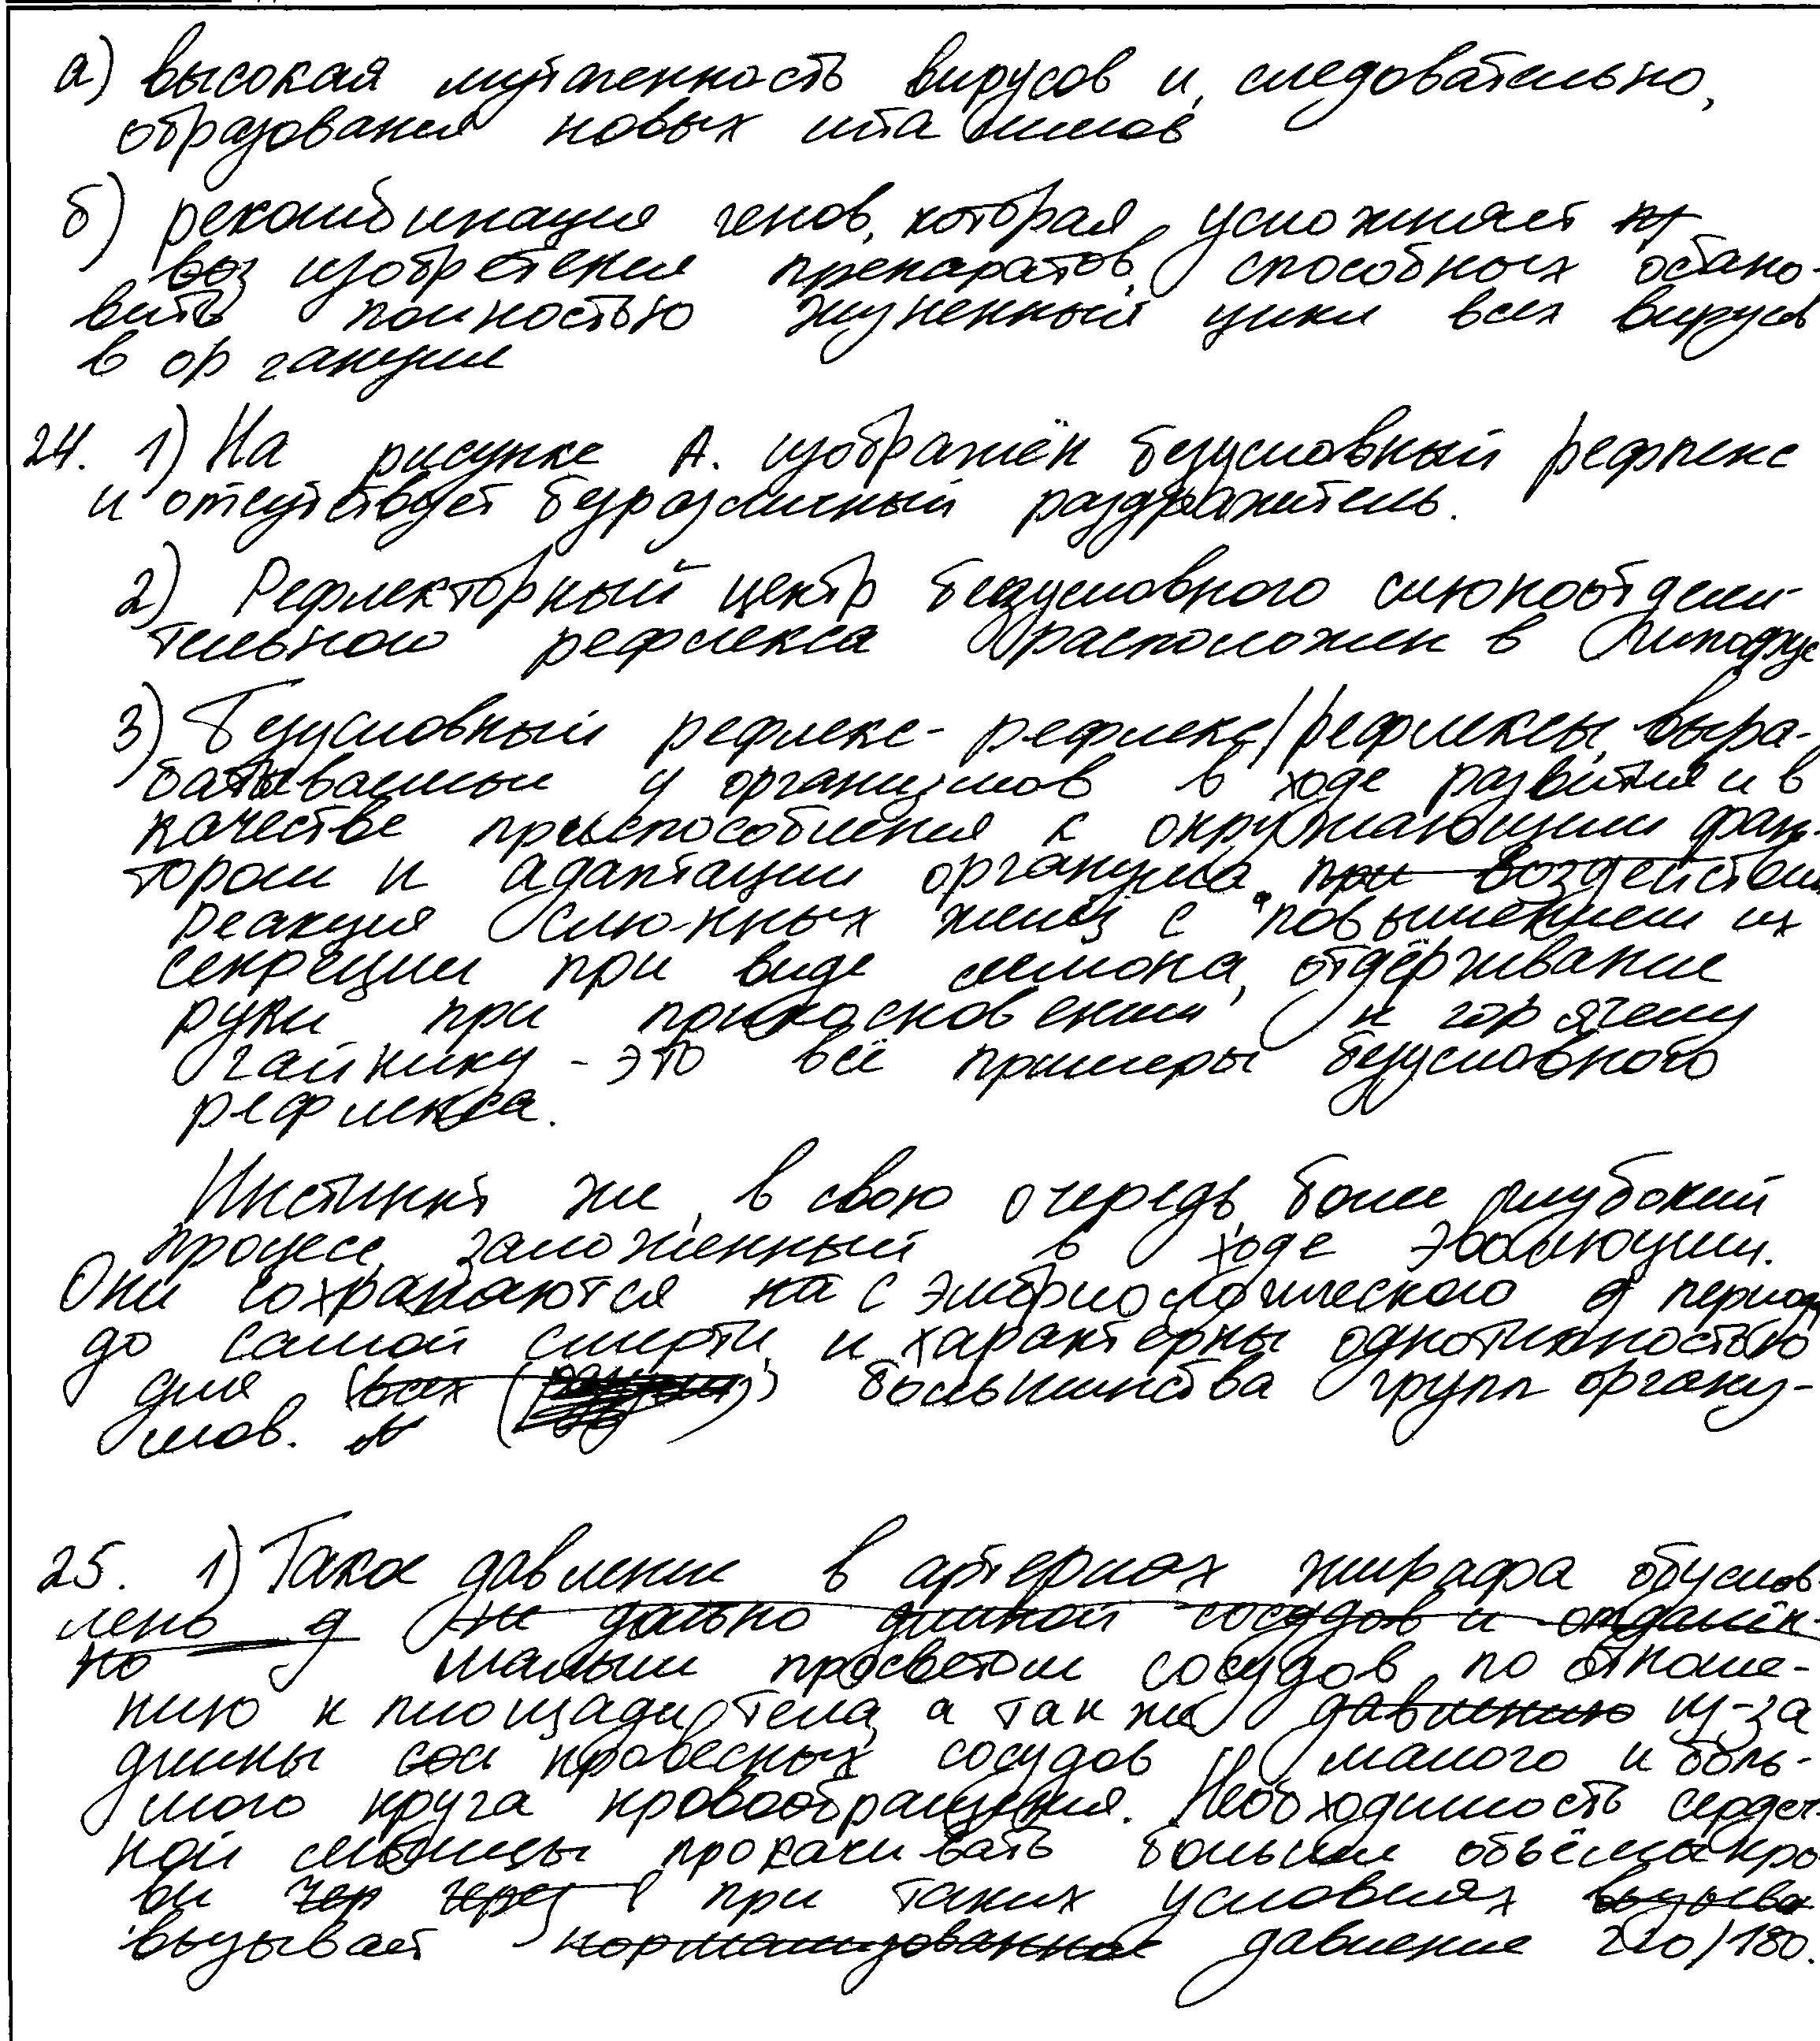 а) высокая мутагенность вирусов и, следовательно,
образования новых штаммов
б) рекомбинация генов, которая усложняет
изобретения препаратов, способных остано-
вить полностью жизненный цикл всех вирусов
в организме
24. 1) На рисунке А. изображён безусловный рефлекс
и отсутствует безразличный раздражитель.
2) Рефлекторный центр безусловного слюноотдели-
тельного рефлекса расположен в
3) Безусловный рефлекс - рефлекс/рефлексы, выра-
батываемый у организмов в ходе развития и в
качестве приспособления к окружающим фак-
торам и адаптации организма, при воздействии
реакция слюнных желёз с повышением их
секреции при виде лимона, отдёргивание
руки при прикосновении к горячему
чайнику - это всё примеры безусловного
рефлекса.
Инстинкт же, в свою очередь, более глубокий
процесс, заложенный в ходе эволюции.
Они сохраняются на с эмбриологического периода
до самой смерти, и характерны однотипностью
для всех большинства групп организ-
мов.
25. 1) Такое давление в артериях жирафа обуслов-
лено д не только длиной сосудов и отдалён-
но малым просветом сосудов по отноше-
нию к площади тела, а так же давлению из-за
длины сос кровесных сосудов малого и боль-
шого круга кровообращения. Необходимость сердеч-
ной мышцы прокачивать большие объёмы кро-
ви чер через при таких условиях вызыва
вызывает нормализованное давление 220/180.